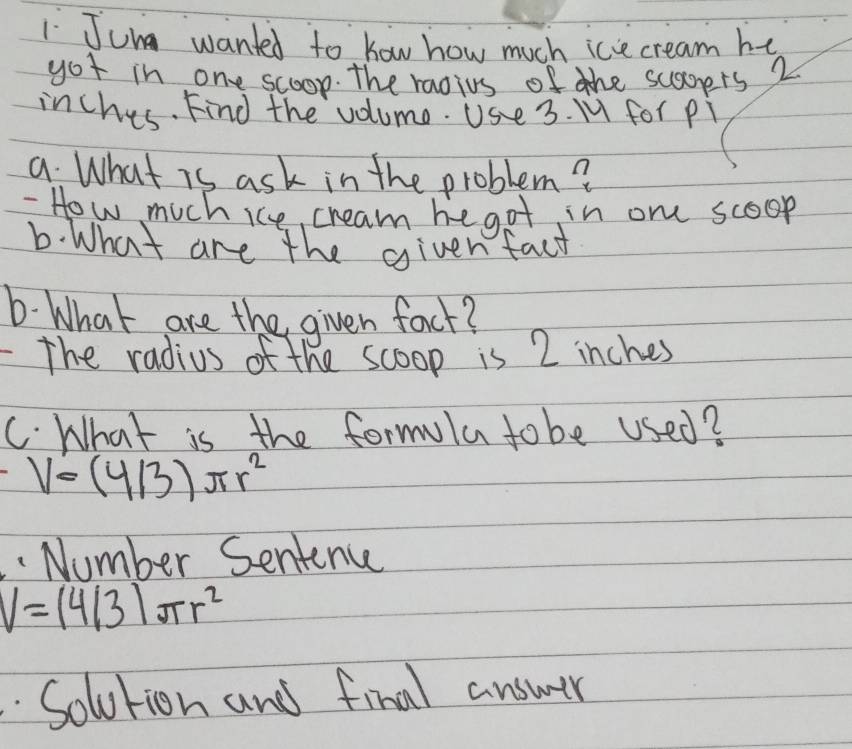 1. Jum wanted to kow how much ice cream he
got in one scoop. The radius of the scoopers 2
inches. Find the volume. Use 3.14 for pi
a. What is ask in the problem?
- How much ice cream he got in one scoop
b. What are the given fact
b. What are the given fact?
- The radius of the scoop is 2 inches
C. What is the formula tobe used?
- V=(4/3)πr²
. Number Sentence
V=(4/3)πr²
. Solution and final answer